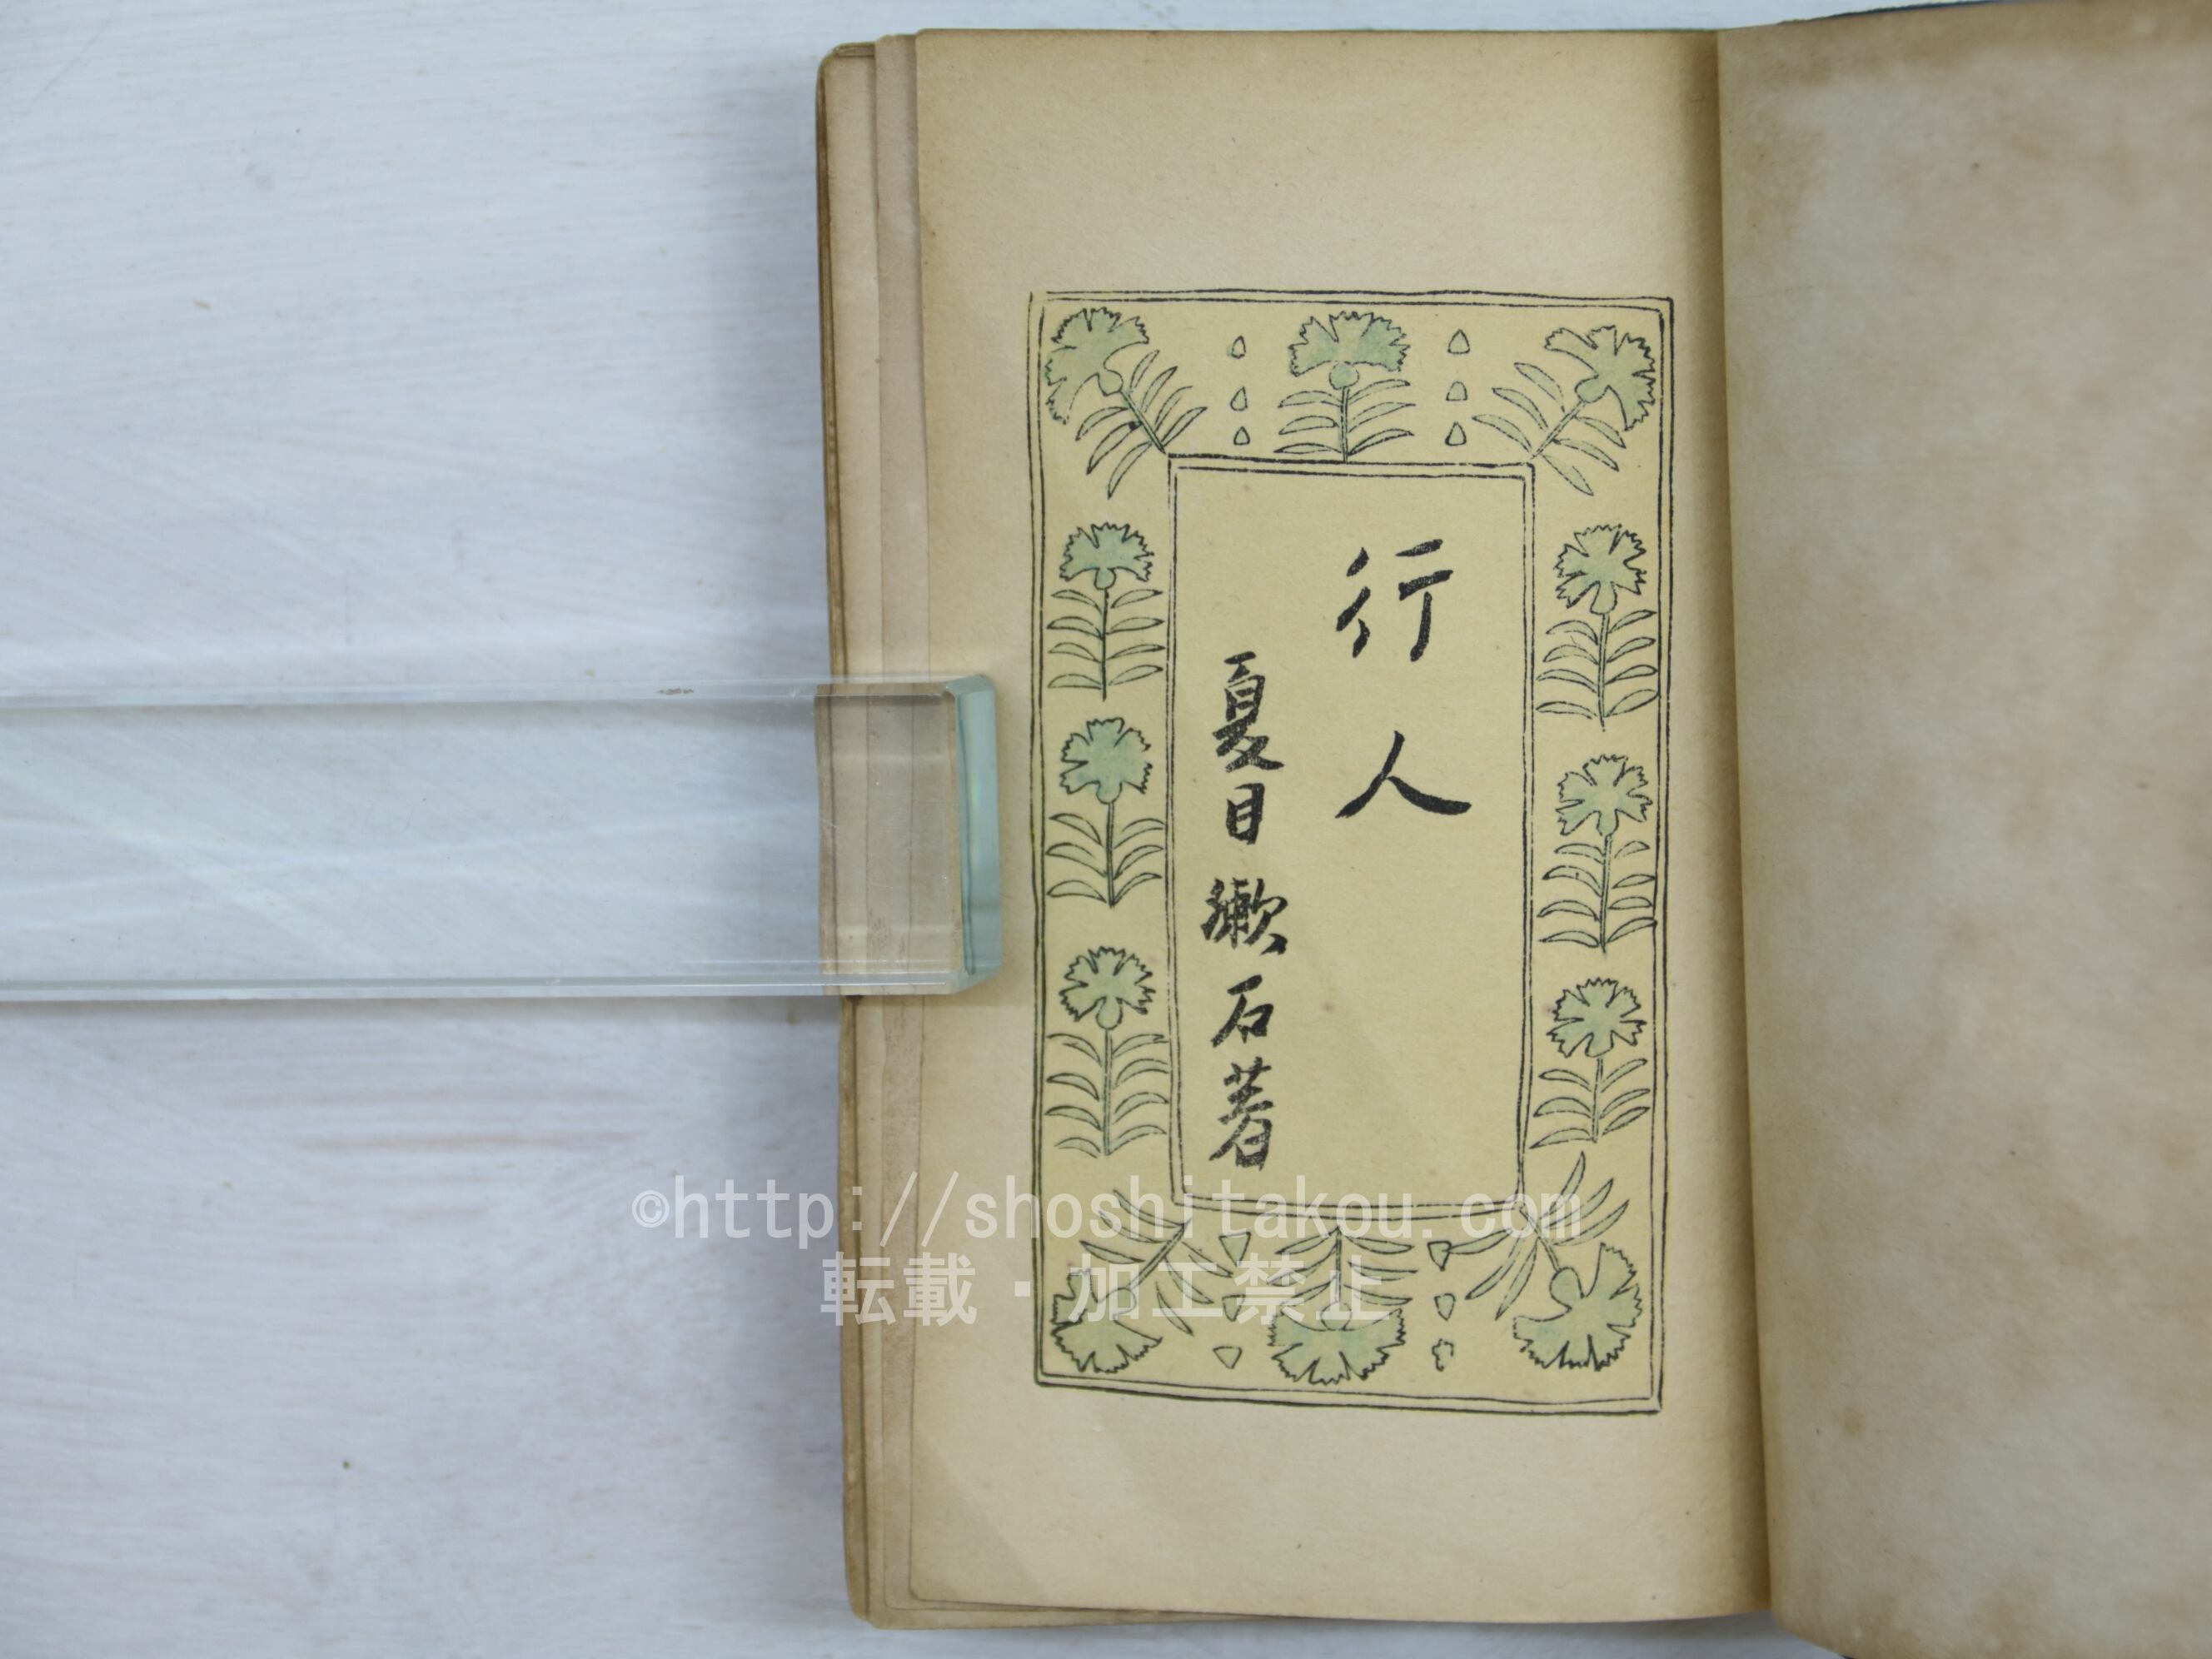 行人
夏目漱石著
©http://shoshitakou.com
転載・加工禁止